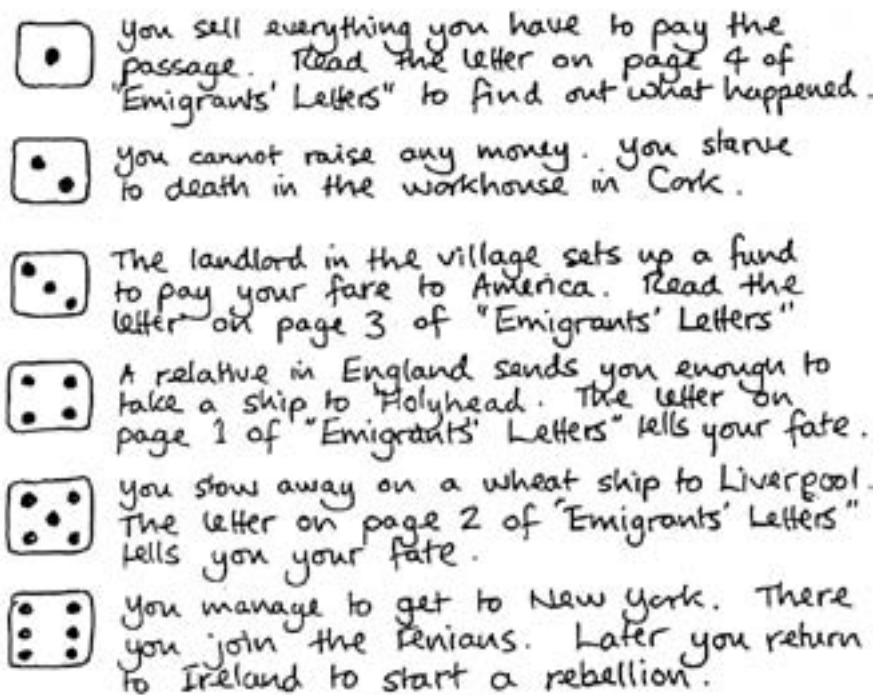 you sell everything you have to pay the
passage. Read the letter on page 4 of
"Emigrants' Letters" to find out what happened.
you cannot raise any money. you starve
to death in the workhouse in Cork.
The landlord in the village sets up a fund
to pay your fare to America. Read the
letter on page 3 of "Emigrants' Letters"
A relative in England sends you enough to
take a ship to Holyhead. The letter on
page 1 of "Emigrants' Letters" tells your fate.
you stow away on a wheat ship to Liverpool.
The letter on page 2 of "Emigrants' Letters"
tells you your fate.
you manage to get to New York. There
you join the Fenians. Later you return
to Ireland to start a rebellion.